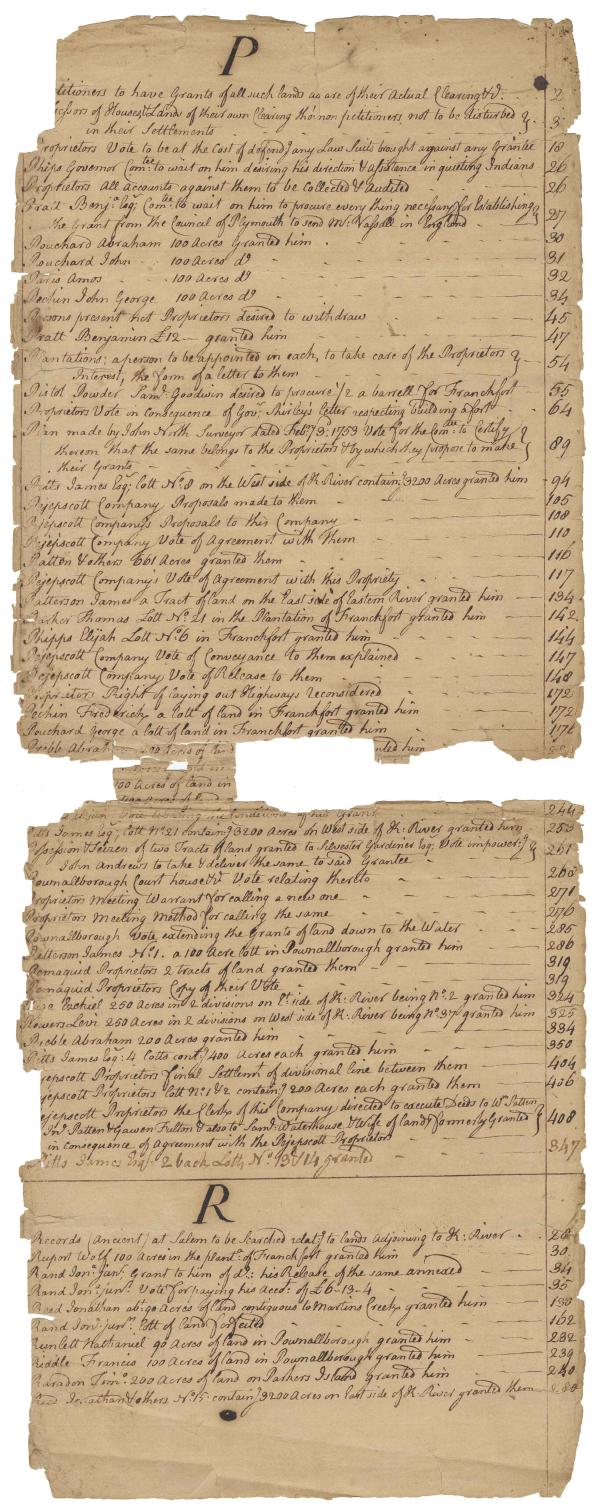 P
titioners to have Grants of all such lands as are of their actual Clearing &c. 2
essors of Houses & Lands of their own Clearing tho' non petitioners, not to be disturbed
in their Settlements 3
Proprietors Vote to be at the Cost of defendg any Law Suits brought against any Grantee 18
Phips Governor Comtee to wait on him desiring his direction & assistance in quieting Indians 26
Proprietors All Accounts against them to be Collected & Audited 26
Pratt Benja Esqr Comtee to wait on him to procure every thing necessary for Establishing
the Grant from the Council of Plymouth to send Mr Vassall in England 27
Pouchard Abraham 100 Acres Granted him 30
Pouchard John 100 Acres do 31
Paris Amos 100 Acres do 32
Pechin John George 100 Acres do 34
Persons present not Proprietors desired to withdraw 45
Pratt Benjamin £12 — granted him 47
Plantations; a person to be appointed in each, to take care of the Proprietors
Interest, the form of a letter to them 54
Pistol Powder Saml Goodwin desired to procure 1/2 a barrell for Franckfort 55
Proprietors Vote in Consequence of Govr Shirley's letter respecting building a fort 64
Plan made by John North Surveyor dated Feby 3d: 1753 Vote for the Comtee to Certify
thereon that the same belongs to the Proprietors & by which they propose to make
their Grants 89
Pitts James Esqr Lott No 8 on the West side of K: River containg 3200 Acres granted him 94
Pejepscott Company Proposals made to them 105
Pejepscott Company's Proposals to this Company 108
Pejepscott Company Vote of Agreement with Them 110
Patton & others 661 Acres granted them 116
Pejepscott Company's Vote of Agreement with this Propriety 117
Patterson James a Tract of land on the East side of Eastern River granted him 134
Parker Thomas Lott No 21 in the Plantation of Franckfort granted him 142
Phipps Elijah Lott No 6 in Franckfort granted him 144
Pejepscott Company Vote of Conveyance to them explained 147
Pejepscott Company Vote of Release to them 148
Proprietors Right of laying out Highways reconsidered 172
Pechin Frederick a lott of land in Franckfort granted him 172
Pouchard George a lott of land in Franckfort granted him 172
Preble Abra 100 Acres of land nted him
100 Acres of land in
244
Pitts James Esqr Lott No 21 containg 3200 Acres on West side of K: River granted him 253
Possession & Seizen of two Tracts of land granted to Silvester Gardiner Esqr Vote impowerg
John Andrews to take & deliver the same to said Grantee 261
Pownallborough Court house &c Vote relating thereto 268
Proprietors Meeting Warrant for calling a new one 271
Proprietors Meeting Method for calling the same 276
Pownallborough Vote extending the Grants of land down to the Water 285
Patterson James No 1. a 100 Acre lott in Pownallborough granted him 286
Pemaquid Proprietors 2 tracts of land granted them 319
Pemaquid Proprietors Copy of their Vote 319
Ezekiel 250 Acres in 2 divisions on Et side of K: River being No 2 granted him 324
Powers Levi 250 Acres in 2 divisions on West side of K: River being No 37 granted him 325
Preble Abraham 200 Acres granted him 334
Pitts James Esqr 4 Lotts contg 400 Acres each granted him 350
ejepscott Proprietors final Settlemt of divisional line between them 404
ejepscott Proprietors Lott No 1 & 2 containg 200 Acres each granted them 406
ejepscott Proprietors the Clerk of this Company directed to execute Deeds to Wm Patten
Jno Patten & Gawen Fulton & also to Saml Waterhouse & Wife of lands formerly Granted
in consequence of agreement with the Pejepscott Proprietors 408
Pitts James Esqr 2 back Lotts No 13 & 14 granted 347
R
Records (Ancient) at Salem to be searched relatg to lands adjoining to K: River 26
Rupert Wolf 100 Acres in the plantn of Franckfort granted him 30
Rand Jona junr Grant to him of do: his Release of the same annexed 34
Rand Jona junr Vote for paying his Accot of £6-13-4 35
Reed Jonathan abt 90 Acres of land contiguous to Martins Creek granted him 136
Rand Jona junr Lott of land forfeited 162
Runlett Nathaniel 90 Acres of land in Pownallborough granted him 232
Riddle Francis 100 Acres of land in Pownallborough granted him 239
Raradon Timo 200 Acres of land on Parkers Island granted him 240
Reed Jonathan & others No 15 containg 3200 Acres on East side of K: River granted them